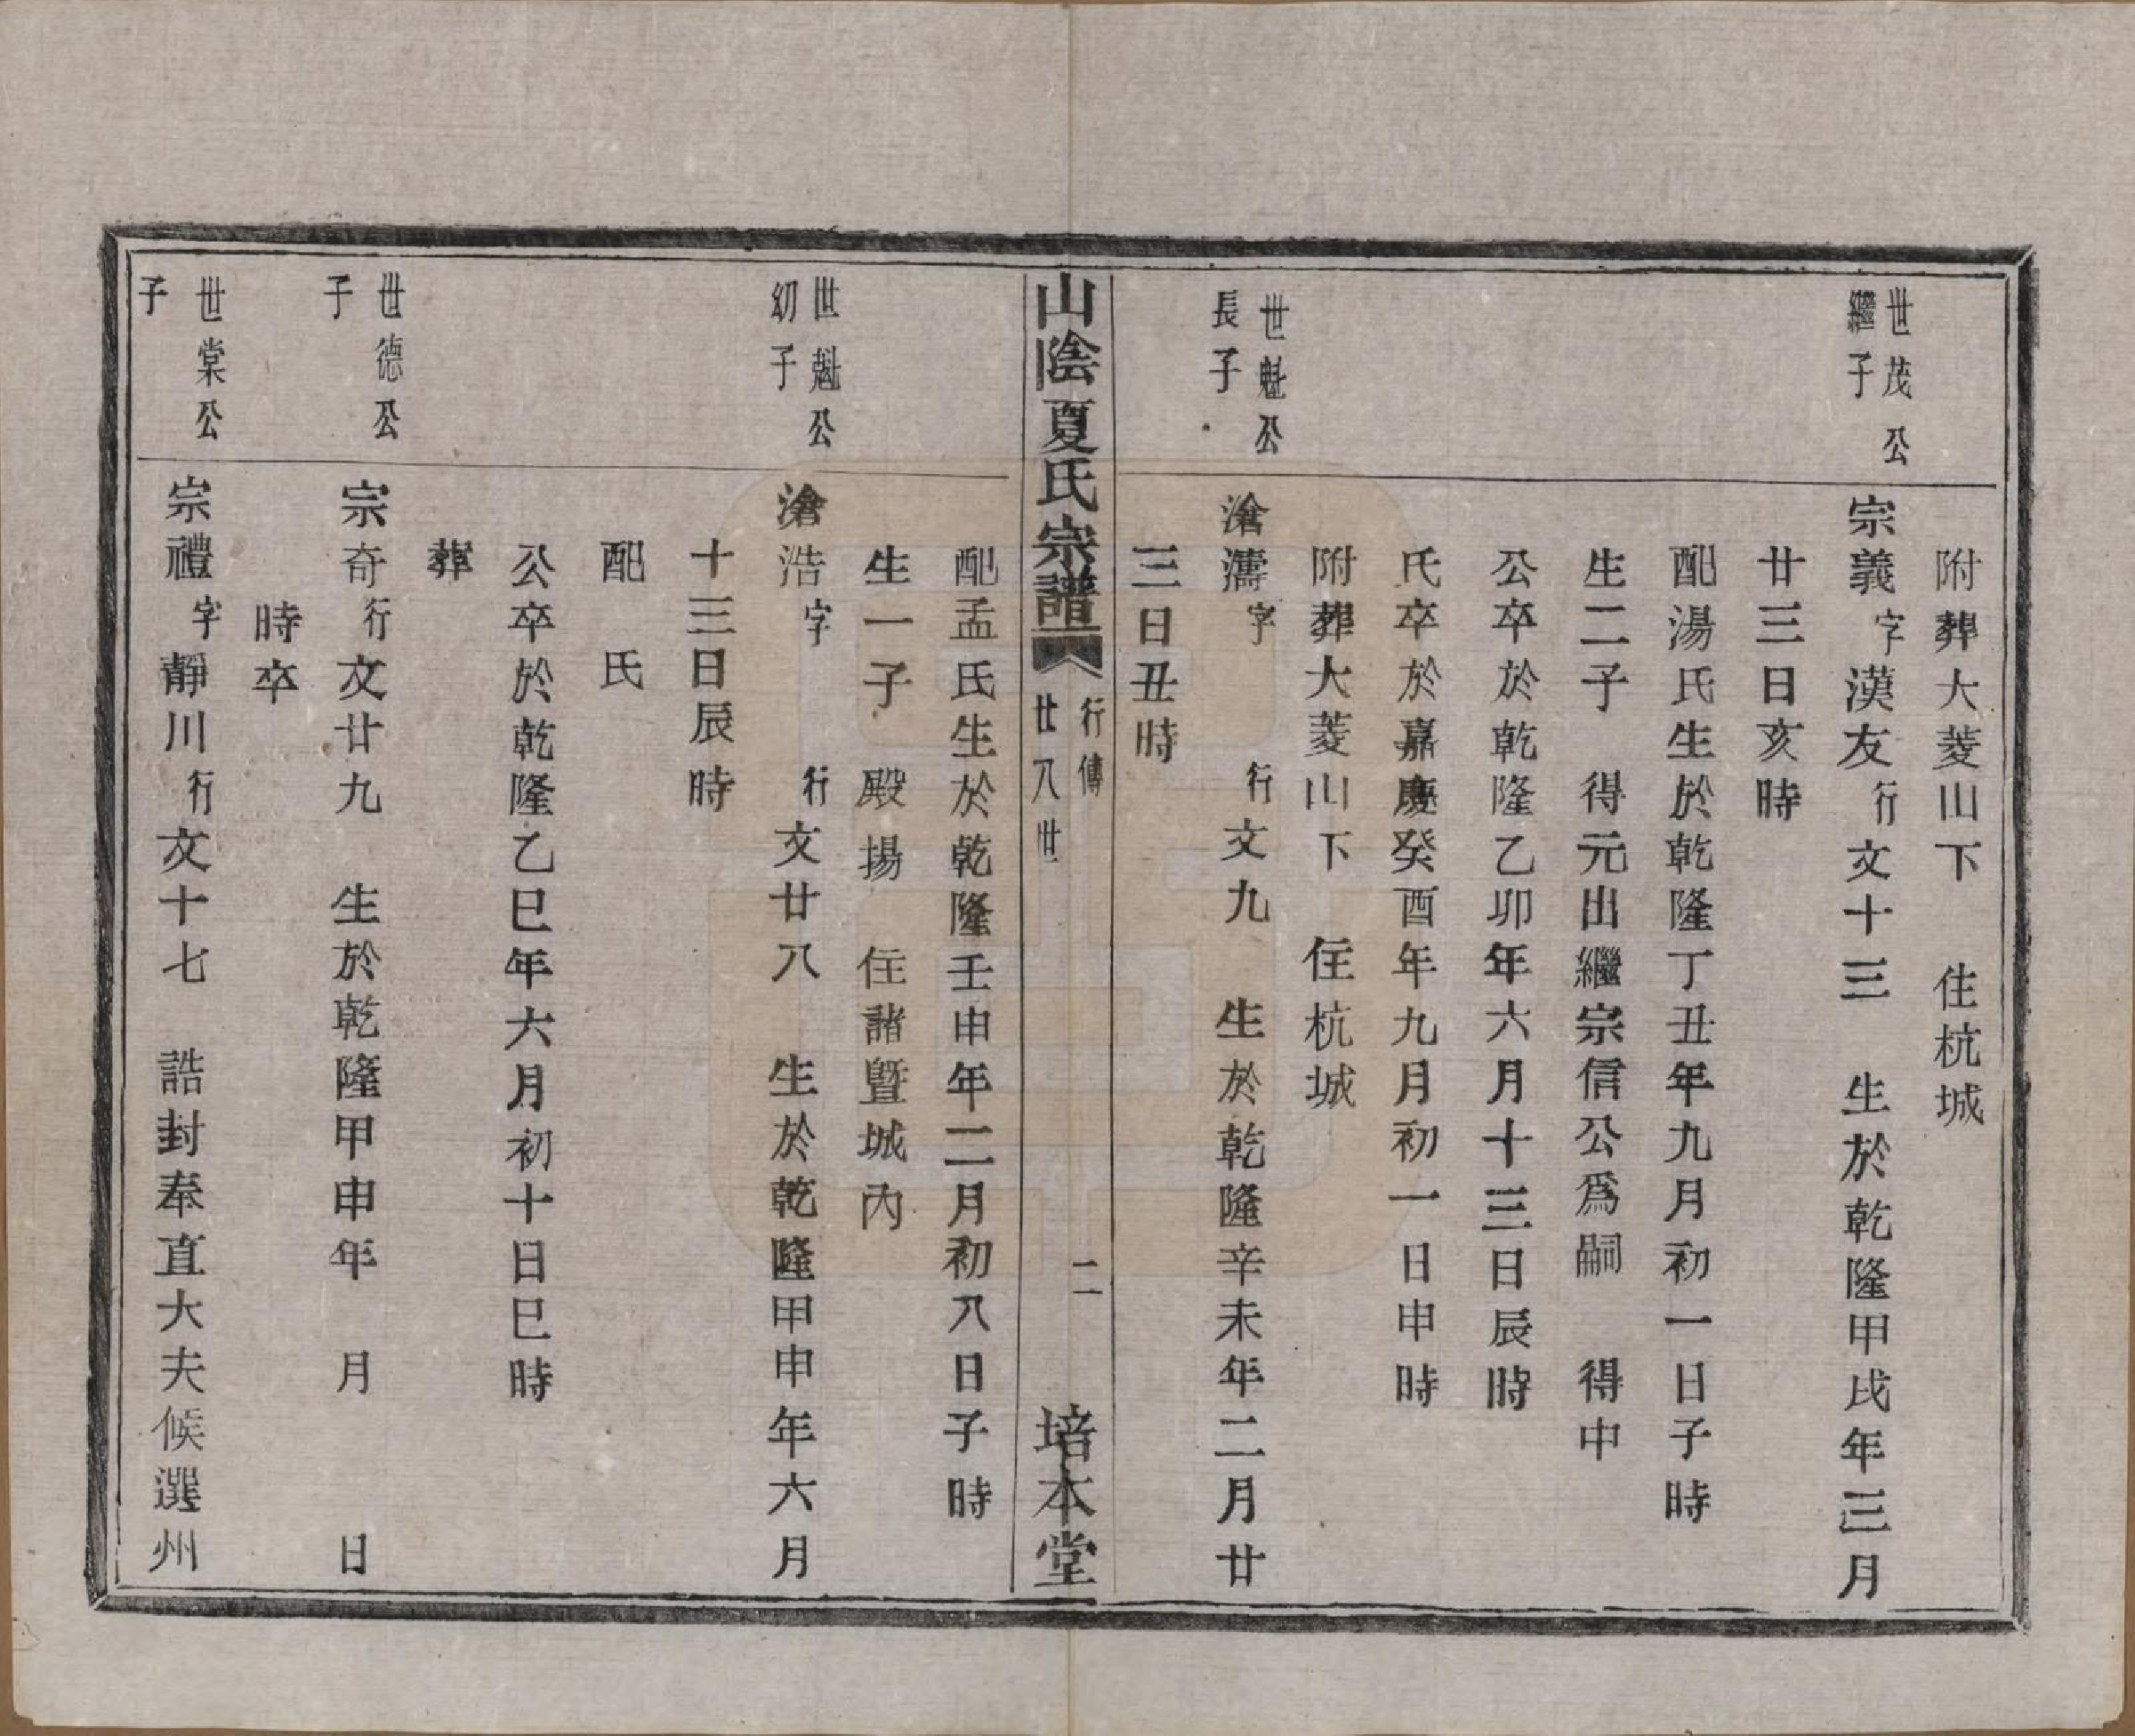 附葬大菱山下　住杭城
世茂公
繼子
宗義字漢友行文十三　生於乾隆甲戌年三月
廿三日亥時
配湯氏生於乾隆丁丑年九月初一日子時
生二子　得元出繼宗信公爲嗣　得中
公卒於乾隆乙卯年六月十三日辰時
氏卒於嘉慶癸酉年九月初一日申時
附葬大菱山下　住杭城
世魁公
長子
滄濤字　　行文九　生於乾隆辛未年二月廿
三日丑時
山陰夏氏宗譜
行傳
廿八世
二
培本堂
配孟氏生於乾隆壬申年二月初八日子時
生一子　殿揚　住諸暨城內
世魁公
幼子
滄浩字　　行文廿八　生於乾隆甲申年六月
十三日辰時
配　氏
公卒於乾隆乙巳年六月初十日巳時
葬
世德公
子
宗奇行文廿九　生於乾隆甲申年　月　　日
時卒
世棠公
子
宗禮字靜川行文十七　誥封奉直大夫候選州